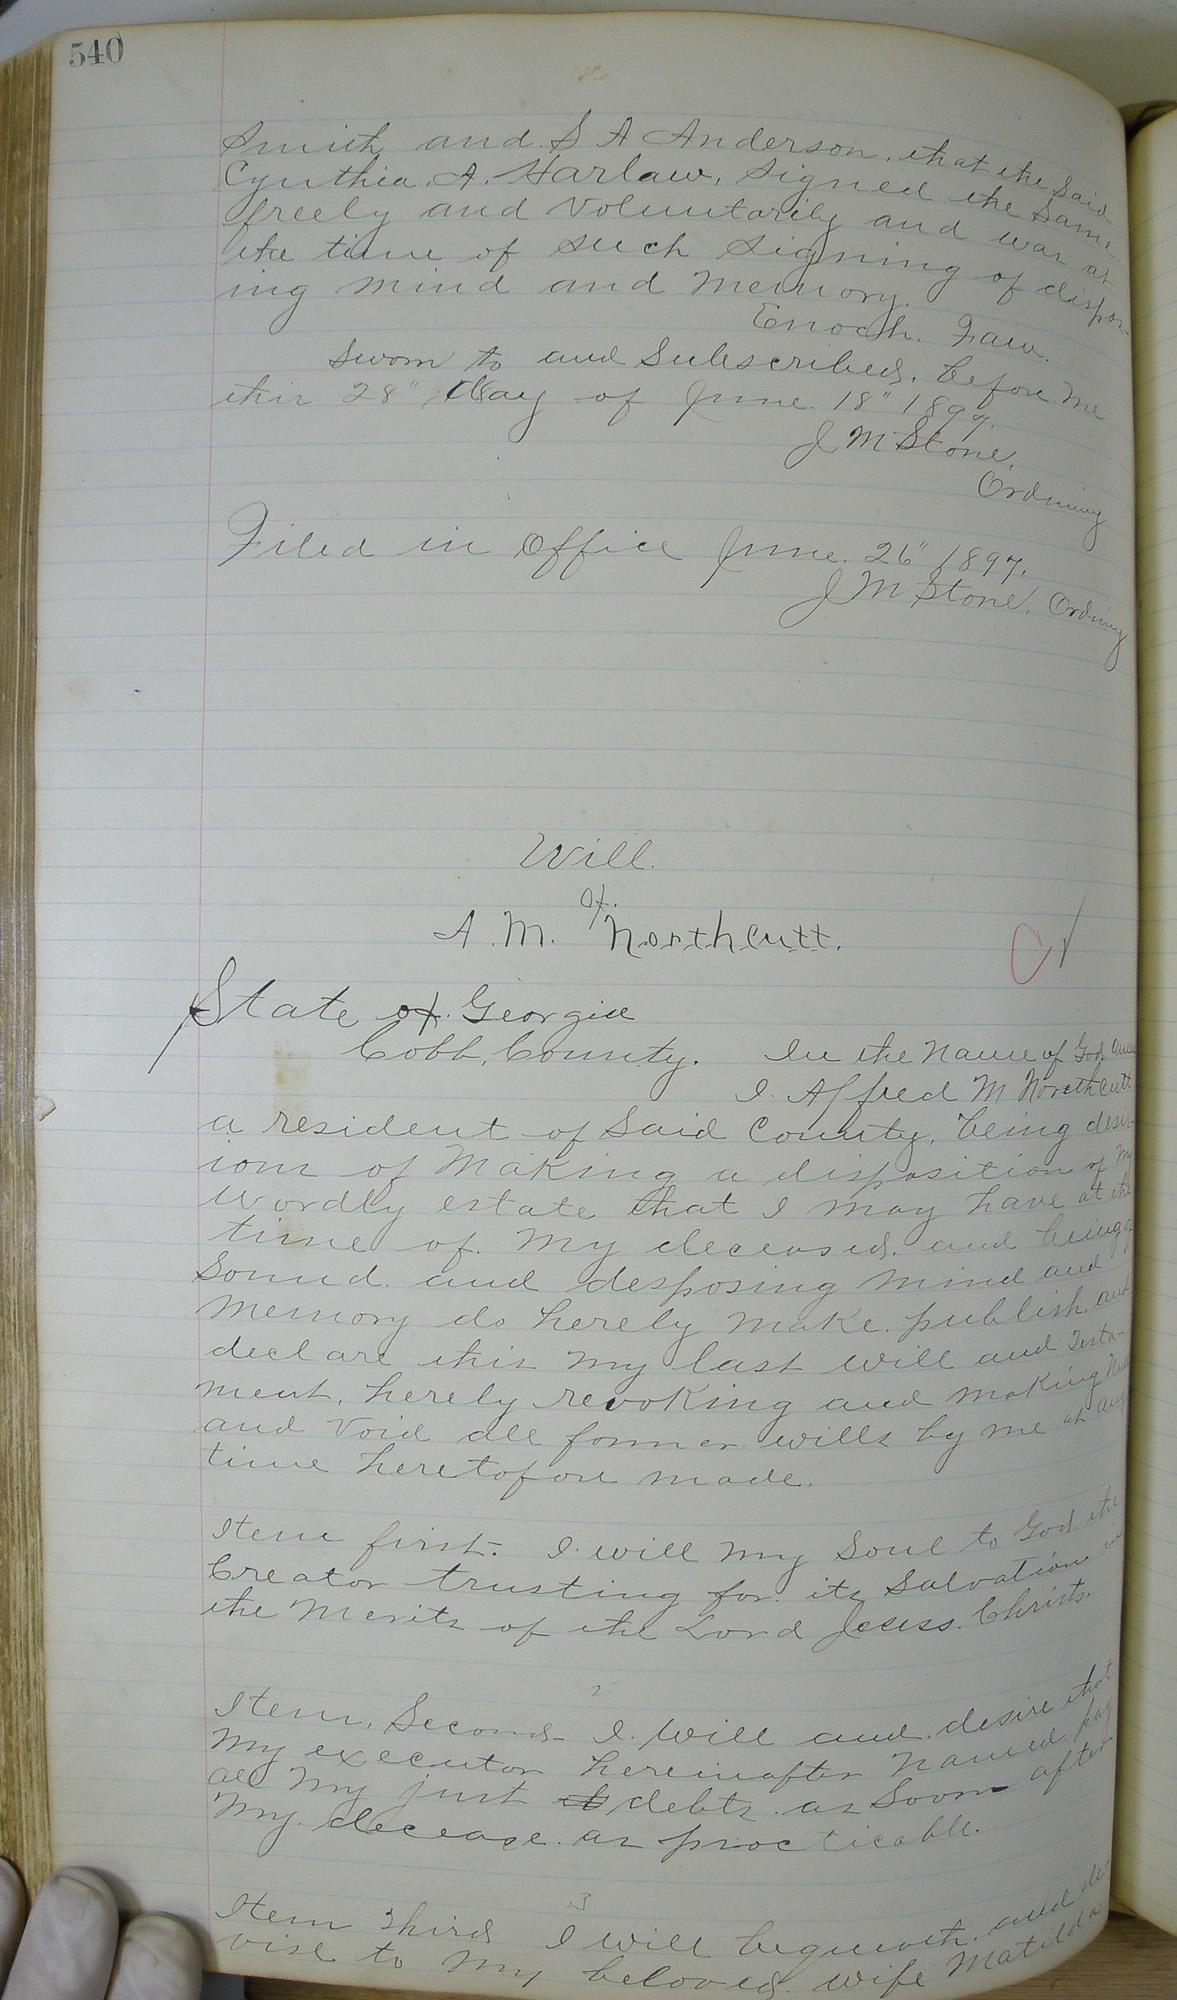 540
Smith and S A Anderson, that the Said
Cynthia. A. Harlaw, Signed the Same
freely and Voluntarily and was at
the time of such Signing of dispos-
ing mind and memory.
Enoch. Faw.
Sworn to and Subscribed, before me
this 28" Day of June. 18" 1897.
J M Stone,
Ordinary
Filed in Office June. 26" 1897.
J M Stone, Ordinary
Will.
of.
A. M. Northcutt.
C
State of. Georgia
Cobb, County. In the Name of God. Amen
I. Alfred M Northcutt
a resident of Said County, being desir-
ious of Making a disposition of My
Wordly estate that I may have at the
time of. My deceased. and being of
Sound. and desposing mind and
Memory do hereby make. publish. and
declare this my last will and Testa-
ment, hereby revoking and making Null
and Void all former wills by me at any
time heretofore made.
Item first. I. will my Soul to God. the
Creator trusting for. its Salvation in
the Merits of the Lord Jesus. Christs.
2
Item, Second- I. Will and desire that
My executor hereinafter Named pay
all My just debts. as Soon after
My. decease. as practicable.
3
Item Third I will bequeath. and de-
vise to My beloved. wife Matilda